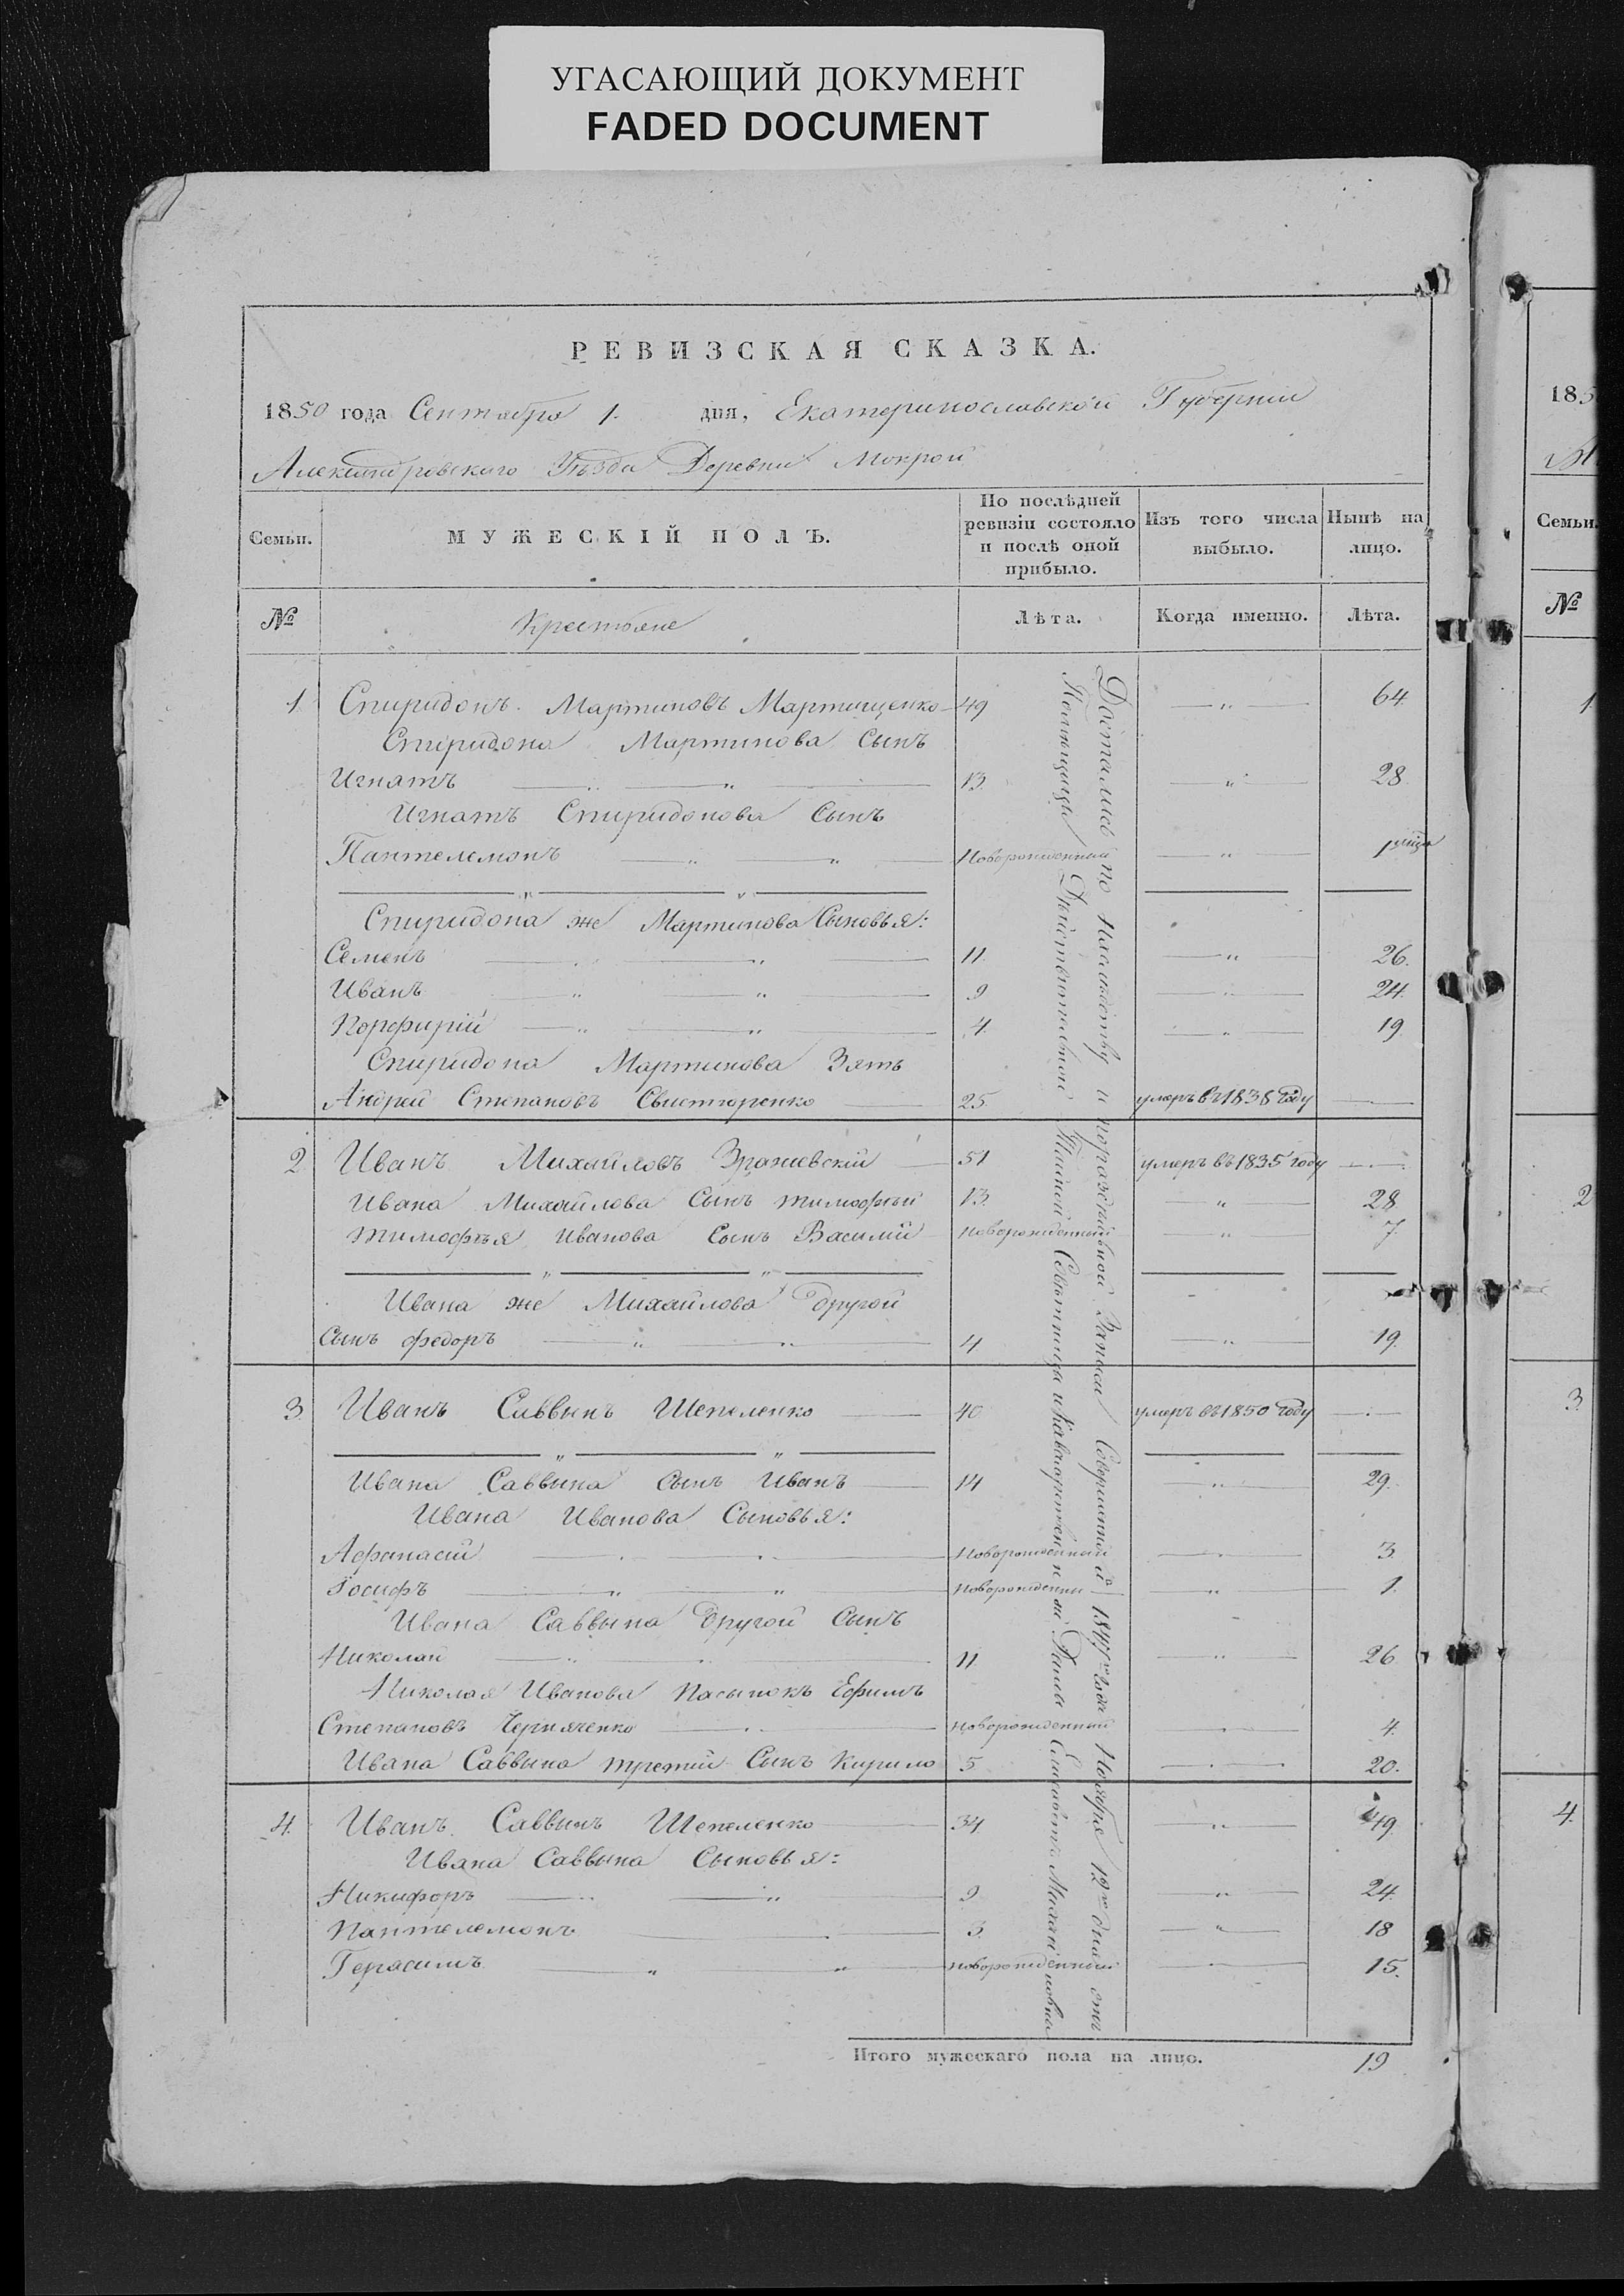 УГАСАЮЩИЙ ДОКУМЕНТ
FADED DOCUMENT
РЕВИЗСКАЯ СКАЗКА.
1850 года Сентября 1. дня, Екатеринославской Губернии
Александровского Уѣзда Деревни Мокрой
Семьи.
МУЖЕСКІЙ ПОЛЪ.
По послѣдней ревизіи состояло и послѣ оной прибыло.
Изъ того числа выбыло.
Нынѣ на лицо.
№ Крестьяне Лѣта. Когда именно. Лѣта.
1. Спиридонъ Мартиновъ Мартищенко 49 — " — 64
Спиридона Мартинова Сынъ
Игнатъ — " — 13. — " — 28
Игнатъ Спиридонова Сынъ
Пантелемонъ — " — " — Новорожденный — " — 1
Спиридона же Мартинова Сыновья:
Семенъ — " — 11. — " — 26.
Иванъ — " — " — 9 — " — 24.
Порфирій — " — " — 4. — " — 19
Спиридона Мартинова Зять
Андрей Степановъ 25. умеръ въ 1838 году —
2 Иванъ Михайловъ Зражевскій 51 умеръ въ 1835 году —
Ивана Михайлова Сынъ Тимофѣй 13. — " — 28
Тимофѣя Иванова Сынъ Василій новорожденный — " — 7.
Ивана же Михайлова другой
Сынъ Федоръ — " — 4 — " — 19.
3. Иванъ Саввинъ Шепеленко 40 умеръ въ 1850 году —
Ивана Саввина Сынъ Иванъ 14 — " — 29.
Ивана Иванова Сыновья:
Афанасій — новорожденный — " — 3
Іосифъ — " — " — новорожденный — " — 1.
Ивана Саввина другой Сынъ
Николай — " — 11. — " — 26
Николая Иванова Пасынокъ Ефимъ
Степановъ Черняченко — новорожденный — " — 4.
Ивана Саввина третій Сынъ Кирило 5 — " — 20.
4. Иванъ Саввинъ Шепеленко 34 — " — 49
Ивана Саввина Сыновья:
Никифоръ — " — 9 — " — 24.
Пантелемонъ — 3. — " — 18
Герасимъ — " — " — новорожденный — " — 15.
Достались по Наслѣдству и пораздѣльной Записи Совершенной 1847го Года Ноября 12го дня отъ
Помѣщицы Дѣйствительной Тайной Совѣтницы и Кавалерственной Дамы Елисаветы
Итого мужескаго пола на лицо. 19
185
Семьи.
№
1
2
3.
4.